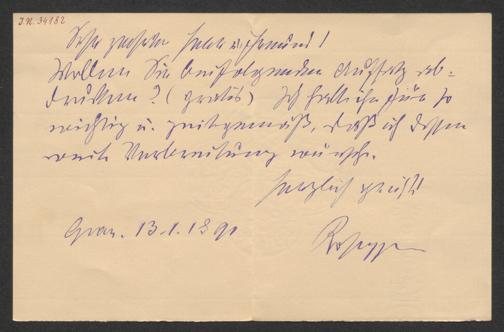 I.N. 34182
Sehr geehrter Herr
Wollen Sie beifolgenden Aufsatz ab-
drucken? (gratis) Ich halte ihn für so
wichtig u. zeitgemäß, daß ich dessen
weite Verbreitung wünsche.
Herzlich grüßt
Graz. 13.1.1891
Rosegger